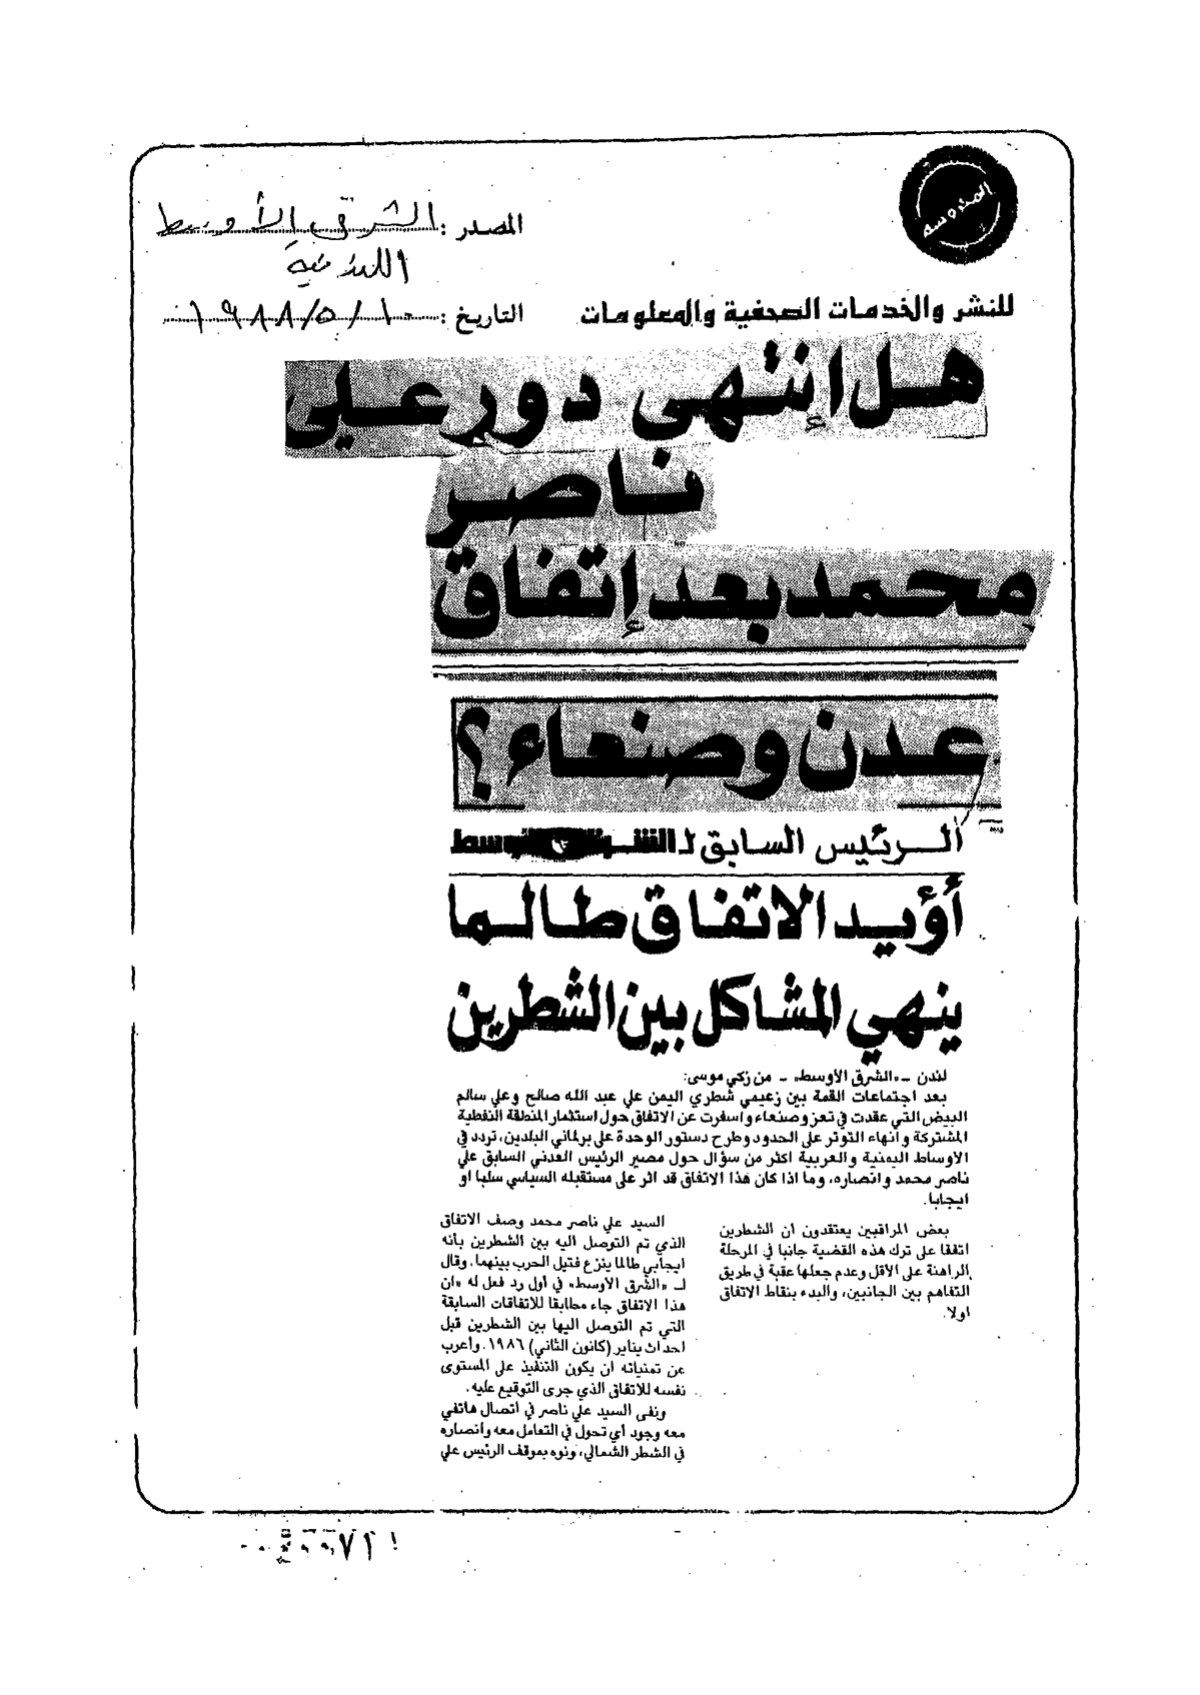 المحروسة
للنشر والخدمات الصحفية والمعلومات
المصدر : الشرق الأوسط
اللندنية
التاريخ : ١٩٨٨/٥/١٠
هل إنتهى دور علي
ناصر
محمد بعد إتفاق
عدن وصنعاء؟
الرئيس السابق لـ الشرق الأوسط
أؤيد الاتفاق طالما
ينهي المشاكل بين الشطرين
لندن ـ «الشرق الأوسط» ـ من زكي موسى:
بعد اجتماعات القمة بين زعيمي شطري اليمن علي عبد الله صالح وعلي سالم
البيض التي عقدت في تعز وصنعاء واسفرت عن الاتفاق حول استثمار المنطقة النفطية
المشتركة وانهاء التوتر على الحدود وطرح دستور الوحدة على برلماني البلدين، تردد في
الاوساط اليمنية والعربية اكثر من سؤال حول مصير الرئيس العدني السابق علي
ناصر محمد وانصاره، وما اذا كان هذا الاتفاق قد اثر على مستقبله السياسي سلبا او
ايجابا.
بعض المراقبين يعتقدون ان الشطرين
اتفقا على ترك هذه القضية جانبا في المرحلة
الراهنة على الاقل وعدم جعلها عقبة في طريق
التفاهم بين الجانبين، والبدء بنقاط الاتفاق
اولا.
السيد علي ناصر محمد وصف الاتفاق
الذي تم التوصل اليه بين الشطرين بأنه
ايجابي طالما ينزع فتيل الحرب بينهما، وقال
لـ «الشرق الاوسط» في أول رد فعل له «ان
هذا الاتفاق جاء مطابقا للاتفاقات السابقة
التي تم التوصل اليها بين الشطرين قبل
احداث يناير (كانون الثاني) ١٩٨٦. وأعرب
عن تمنياته ان يكون التنفيذ على المستوى
نفسه للاتفاق الذي جرى التوقيع عليه.
ونفى السيد علي ناصر في اتصال هاتفي
معه وجود أي تحول في التعامل معه وأنصاره
في الشطر الشمالي، ونوه بموقف الرئيس علي